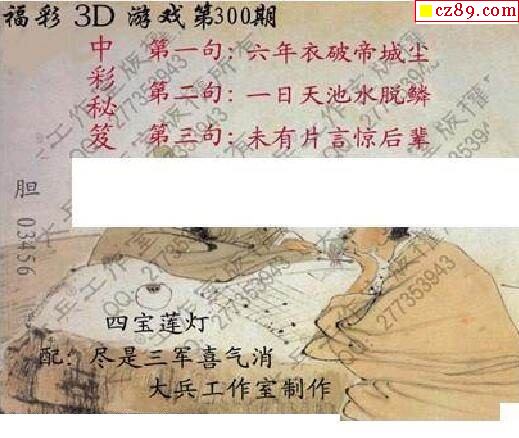 福彩 3D 游戏第300期
cz89.com
中彩秘笈
第一句：六年衣破帝城尘
第二句：一日天池水脱鳞
第三句：未有片言惊后辈
胆 03456
四宝莲灯
配：尽是三军喜气消
大兵工作室制作
大兵工作室版权所有
QQ 277353943